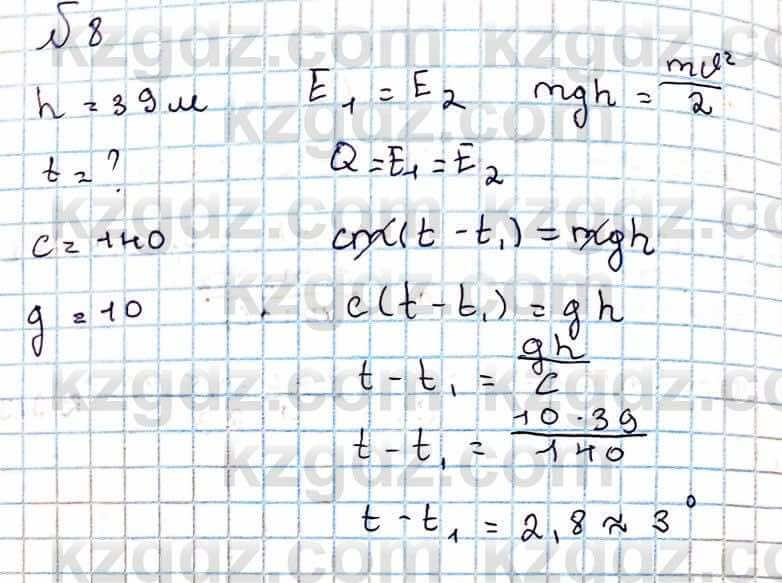 № 8
h = 39 м
t = ?
c = 140
g = 10
E₁ = E₂ mgh = mυ²/2
Q = E₁ = E₂
cm(t - t₁) = mgh
c(t - t₁) = gh
t - t₁ = gh/c
t - t₁ = 10·39/140
t - t₁ = 2,8 ≈ 3°
kzgdz.com